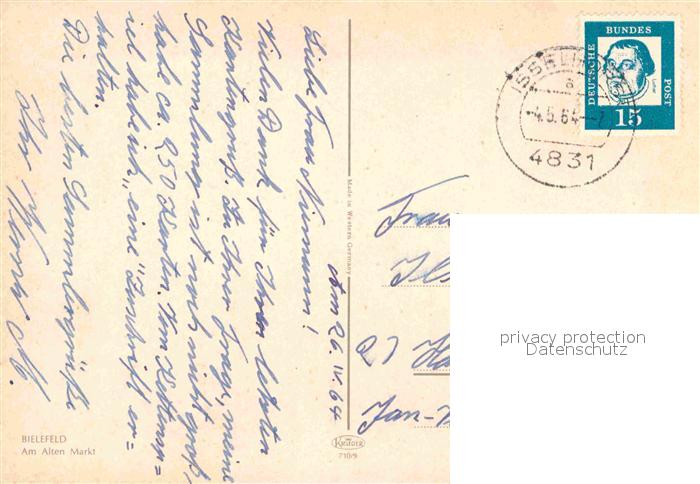 Am 26. IV. 64
Liebe Frau Niemann!
Vielen Dank für Ihren letzten
Kartengruß. Zu Ihrer Frage, meine
Sammlung ist noch nicht groß,
habe ca. 250 Karten. Von Kettenap=
iel habe ich "eine" Zuschrift er=
halten.
Die besten Sammlergrüße
Ihr Werner
BIELEFELD
Am Alten Markt
Made in Western Germany
KRÜGER
710/9
DEUTSCHE BUNDES POST
15
a
-4.5.64-7
4831
Frau
Ils
Jan-
privacy protection
Datenschutz